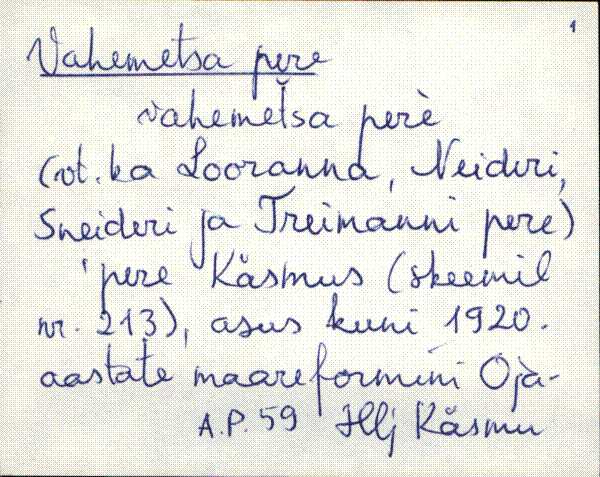 1
Vahemetsa pere
vahemetsa perè
(vt. ka Looranna, Neideri,
Sneideri ja Treimanni pere)
'pere Käsmus (skeemil
nr. 213), asus kuni 1920.
aastate maareformini Oja-
A.P. 59 Hlj Käsmu